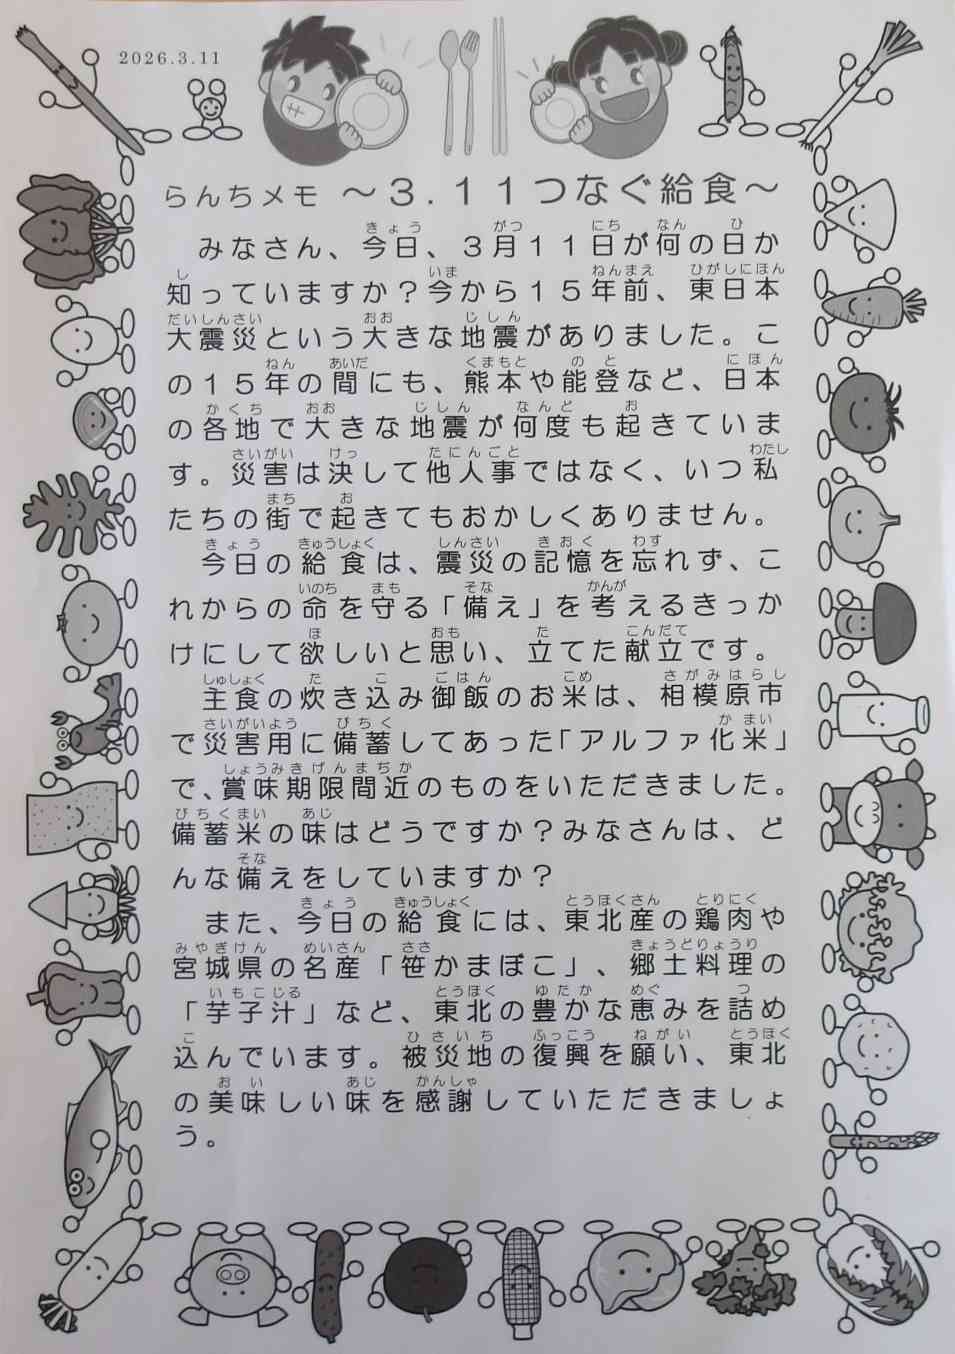 2026.3.11
らんちメモ ～3.11つなぐ給食～
みなさん、今日、3月11日が何の日か
知っていますか？今から15年前、東日本
大震災という大きな地震がありました。こ
の15年の間にも、熊本や能登など、日本
の各地で大きな地震が何度も起きていま
す。災害は決して他人事ではなく、いつ私
たちの街で起きてもおかしくありません。
今日の給食は、震災の記憶を忘れず、こ
れからの命を守る「備え」を考えるきっか
けにして欲しいと思い、立てた献立です。
主食の炊き込み御飯のお米は、相模原市
で災害用に備蓄してあった「アルファ化米」
で、賞味期限間近のものをいただきました。
備蓄米の味はどうですか？みなさんは、ど
んな備えをしていますか？
また、今日の給食には、東北産の鶏肉や
宮城県の名産「笹かまぼこ」、郷土料理の
「芋子汁」など、東北の豊かな恵みを詰め
込んでいます。被災地の復興を願い、東北
の美味しい味を感謝していただきましょ
う。